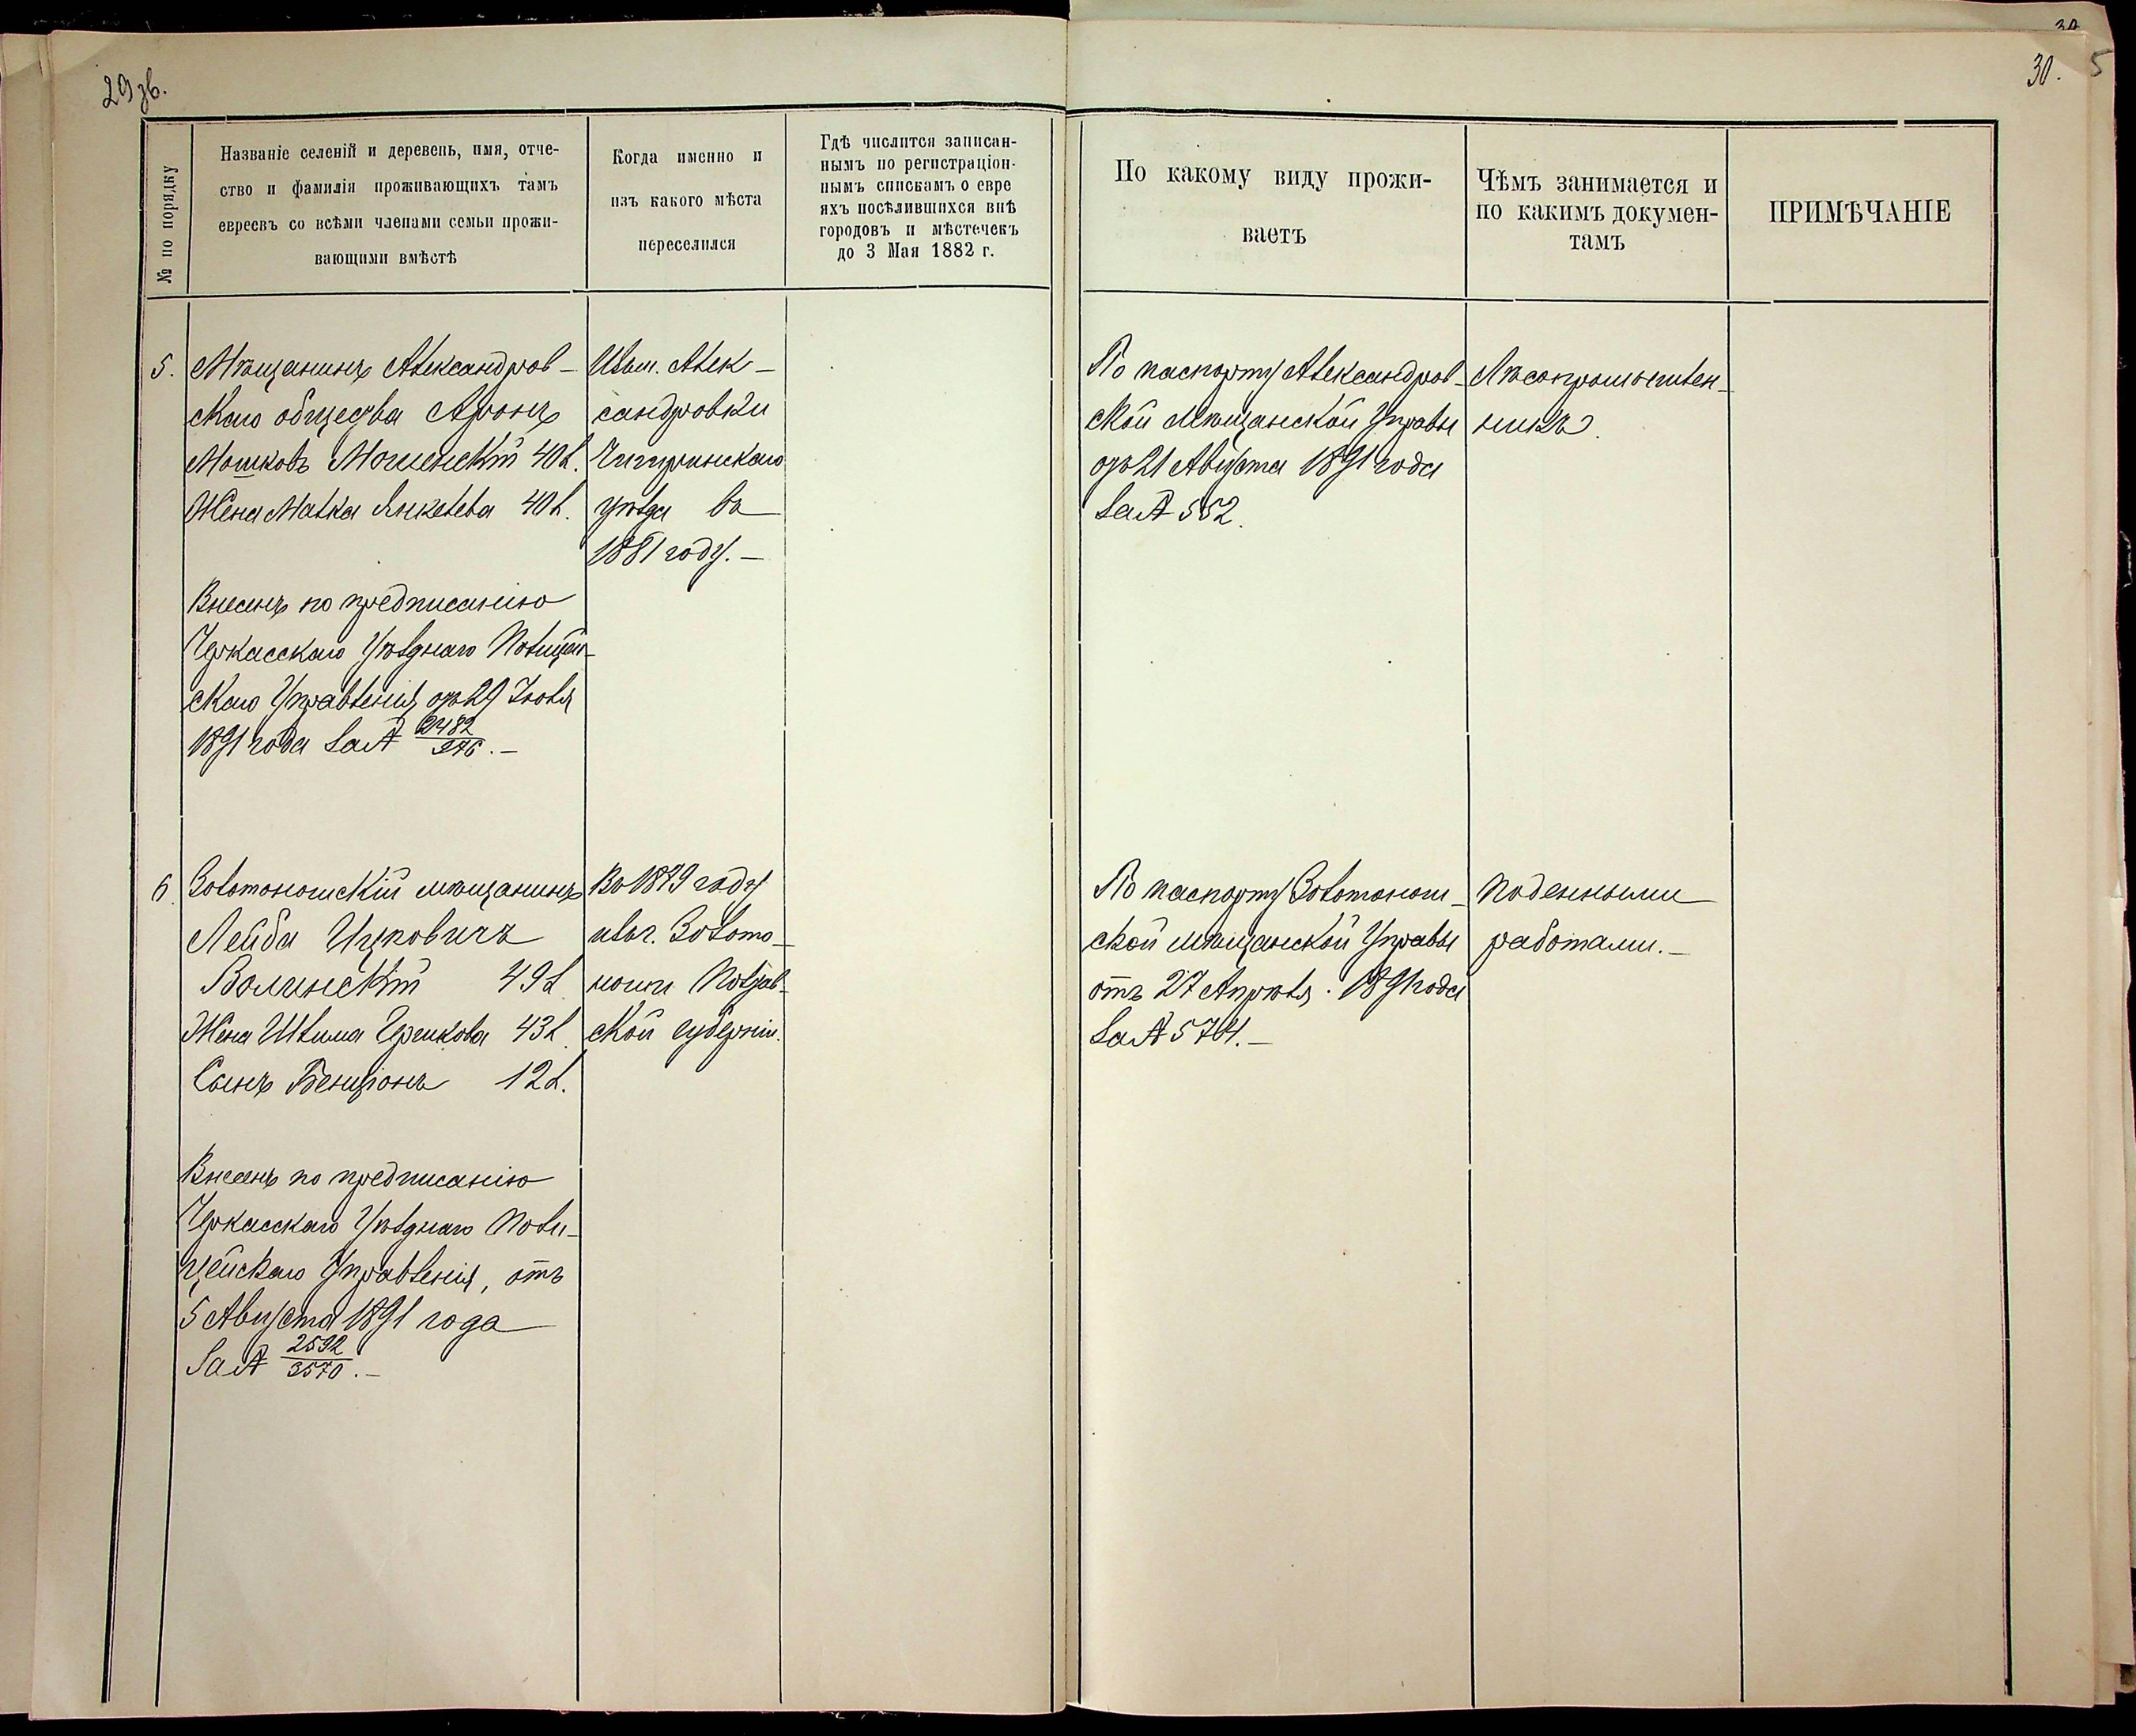 29 зв.
30.
5
30
№ по порядку
Названіе селеній и деревень, имя, отче-
ство и фамилія проживающихъ тамъ
евреевъ со всѣми членами семьи прожи-
вающими вмѣстѣ
Когда именно и
изъ какого мѣста
переселился
Гдѣ числится записан-
нымъ по регистраціон-
нымъ спискамъ о евре
яхъ посѣлившихся внѣ
городовъ и мѣстечекъ
до 3 Мая 1882 г.
По какому виду прожи-
ваетъ
Чѣмъ занимается и
по какимъ докумен-
тамъ
ПРИМѢЧАНІЕ
5.
Мѣщанинъ Александров-
скаго общества Аронъ
Мошковъ Мошенскій 40 л.
Жена Малка Янкелева 40 л.
Внесенъ по предписанію
Черкасскаго Уѣзднаго Полицей-
скаго Управленія отъ 29 Іюля
1891 года за №
Изъ м. Алек-
сандровки
Чигиринскаго
уѣзда въ
1881 году.-
По паспорту Александров-
ской Мѣщанской Управы
отъ 21 Августа 1891 года
за № 552.
Лѣсопромышлен-
никъ.
6.
Золотоношскій мѣщанинъ
Лейба Ицковичъ
Волинскій 49 л
Жена Шлима 43 л.
Сынъ Бенціонъ 12 л.
Внесенъ по предписанію
Черкасскаго Уѣзднаго Поли-
цейскаго Управленія, отъ
5 Августа 1891 года
за № 2592/3570.-
Въ 1879 году
изъ г. Золото-
ноши Полтав-
ской губерніи.
По паспорту Золотонош-
ской мѣщанской Управы
отъ 27 Апрѣля 1891 года
за № 574.-
Поденными
работами.-